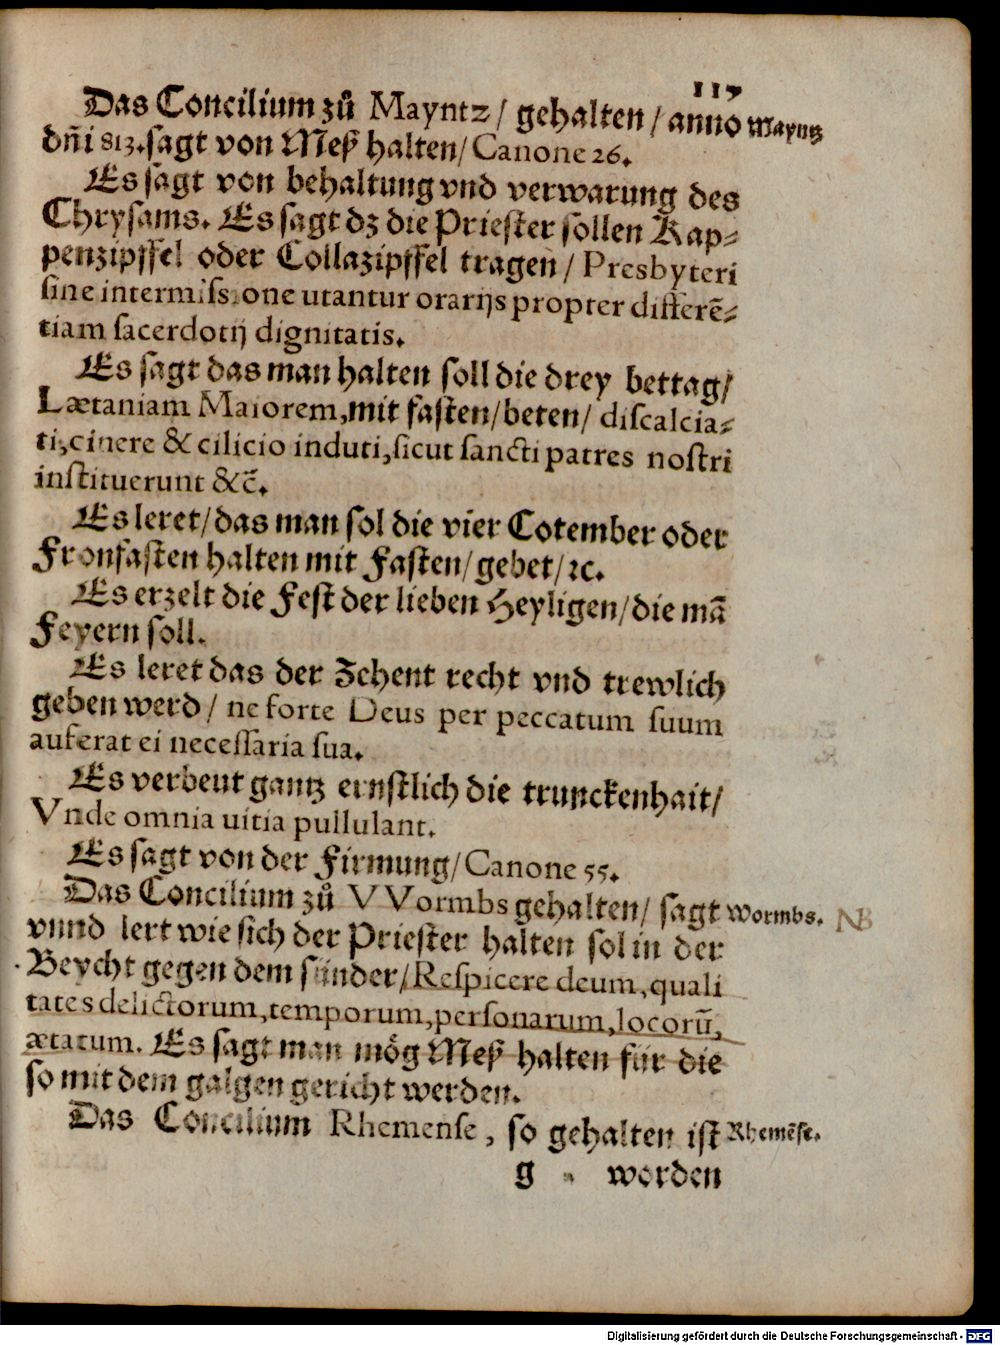 117
Das Concilium zů Mayntz / gehalten / anno Mayntz
dñi 813. sagt von Meß halten / Canone 26.
Es sagt von behaltung vnd verwarung des
Chrysams. Es sagt dz die Priester sollen Kap⸗
penzipffel oder Collazipffel tragen / Presbyteri
sine intermissione utantur orarijs propter differē⸗
tiam sacerdotij dignitatis.
Es sagt das man halten soll die drey bettag /
Lætaniam Maiorem, mit fasten / beten / discalcia⸗
ti, cinere & cilicio induti, sicut sancti patres nostri
instituerunt &c̄.
Es leret / das man sol die vier Cotember oder
Fronfasten halten mit Fasten / gebet / ꝛc.
Es erzelt die Fest der lieben Heyligen / die mã
Feyern soll.
Es leret das der Zehent recht vnd trewlich
geben werd / ne forte Deus per peccatum suum
auferat ei necessaria sua.
Es verbeut gantz ernstlich die trunckenhait /
Vnde omnia uitia pullulant.
Es sagt von der Firmung / Canone 55.
Das Concilium zů VVormbs gehalten / sagt Wormbs. NB
vnnd lert wie sich der Priester halten sol in der
Beycht gegen dem sünder / Respicere deum, quali
tates delictorum, temporum, personarum, locorū,
ætatum. Es sagt man mög Meß halten für die
so mit dem galgen gericht werden.
Das Concilium Rhemense, so gehalten ist Rhemēse.
g worden
Digitalisierung gefördert durch die Deutsche Forschungsgemeinschaft - DFG